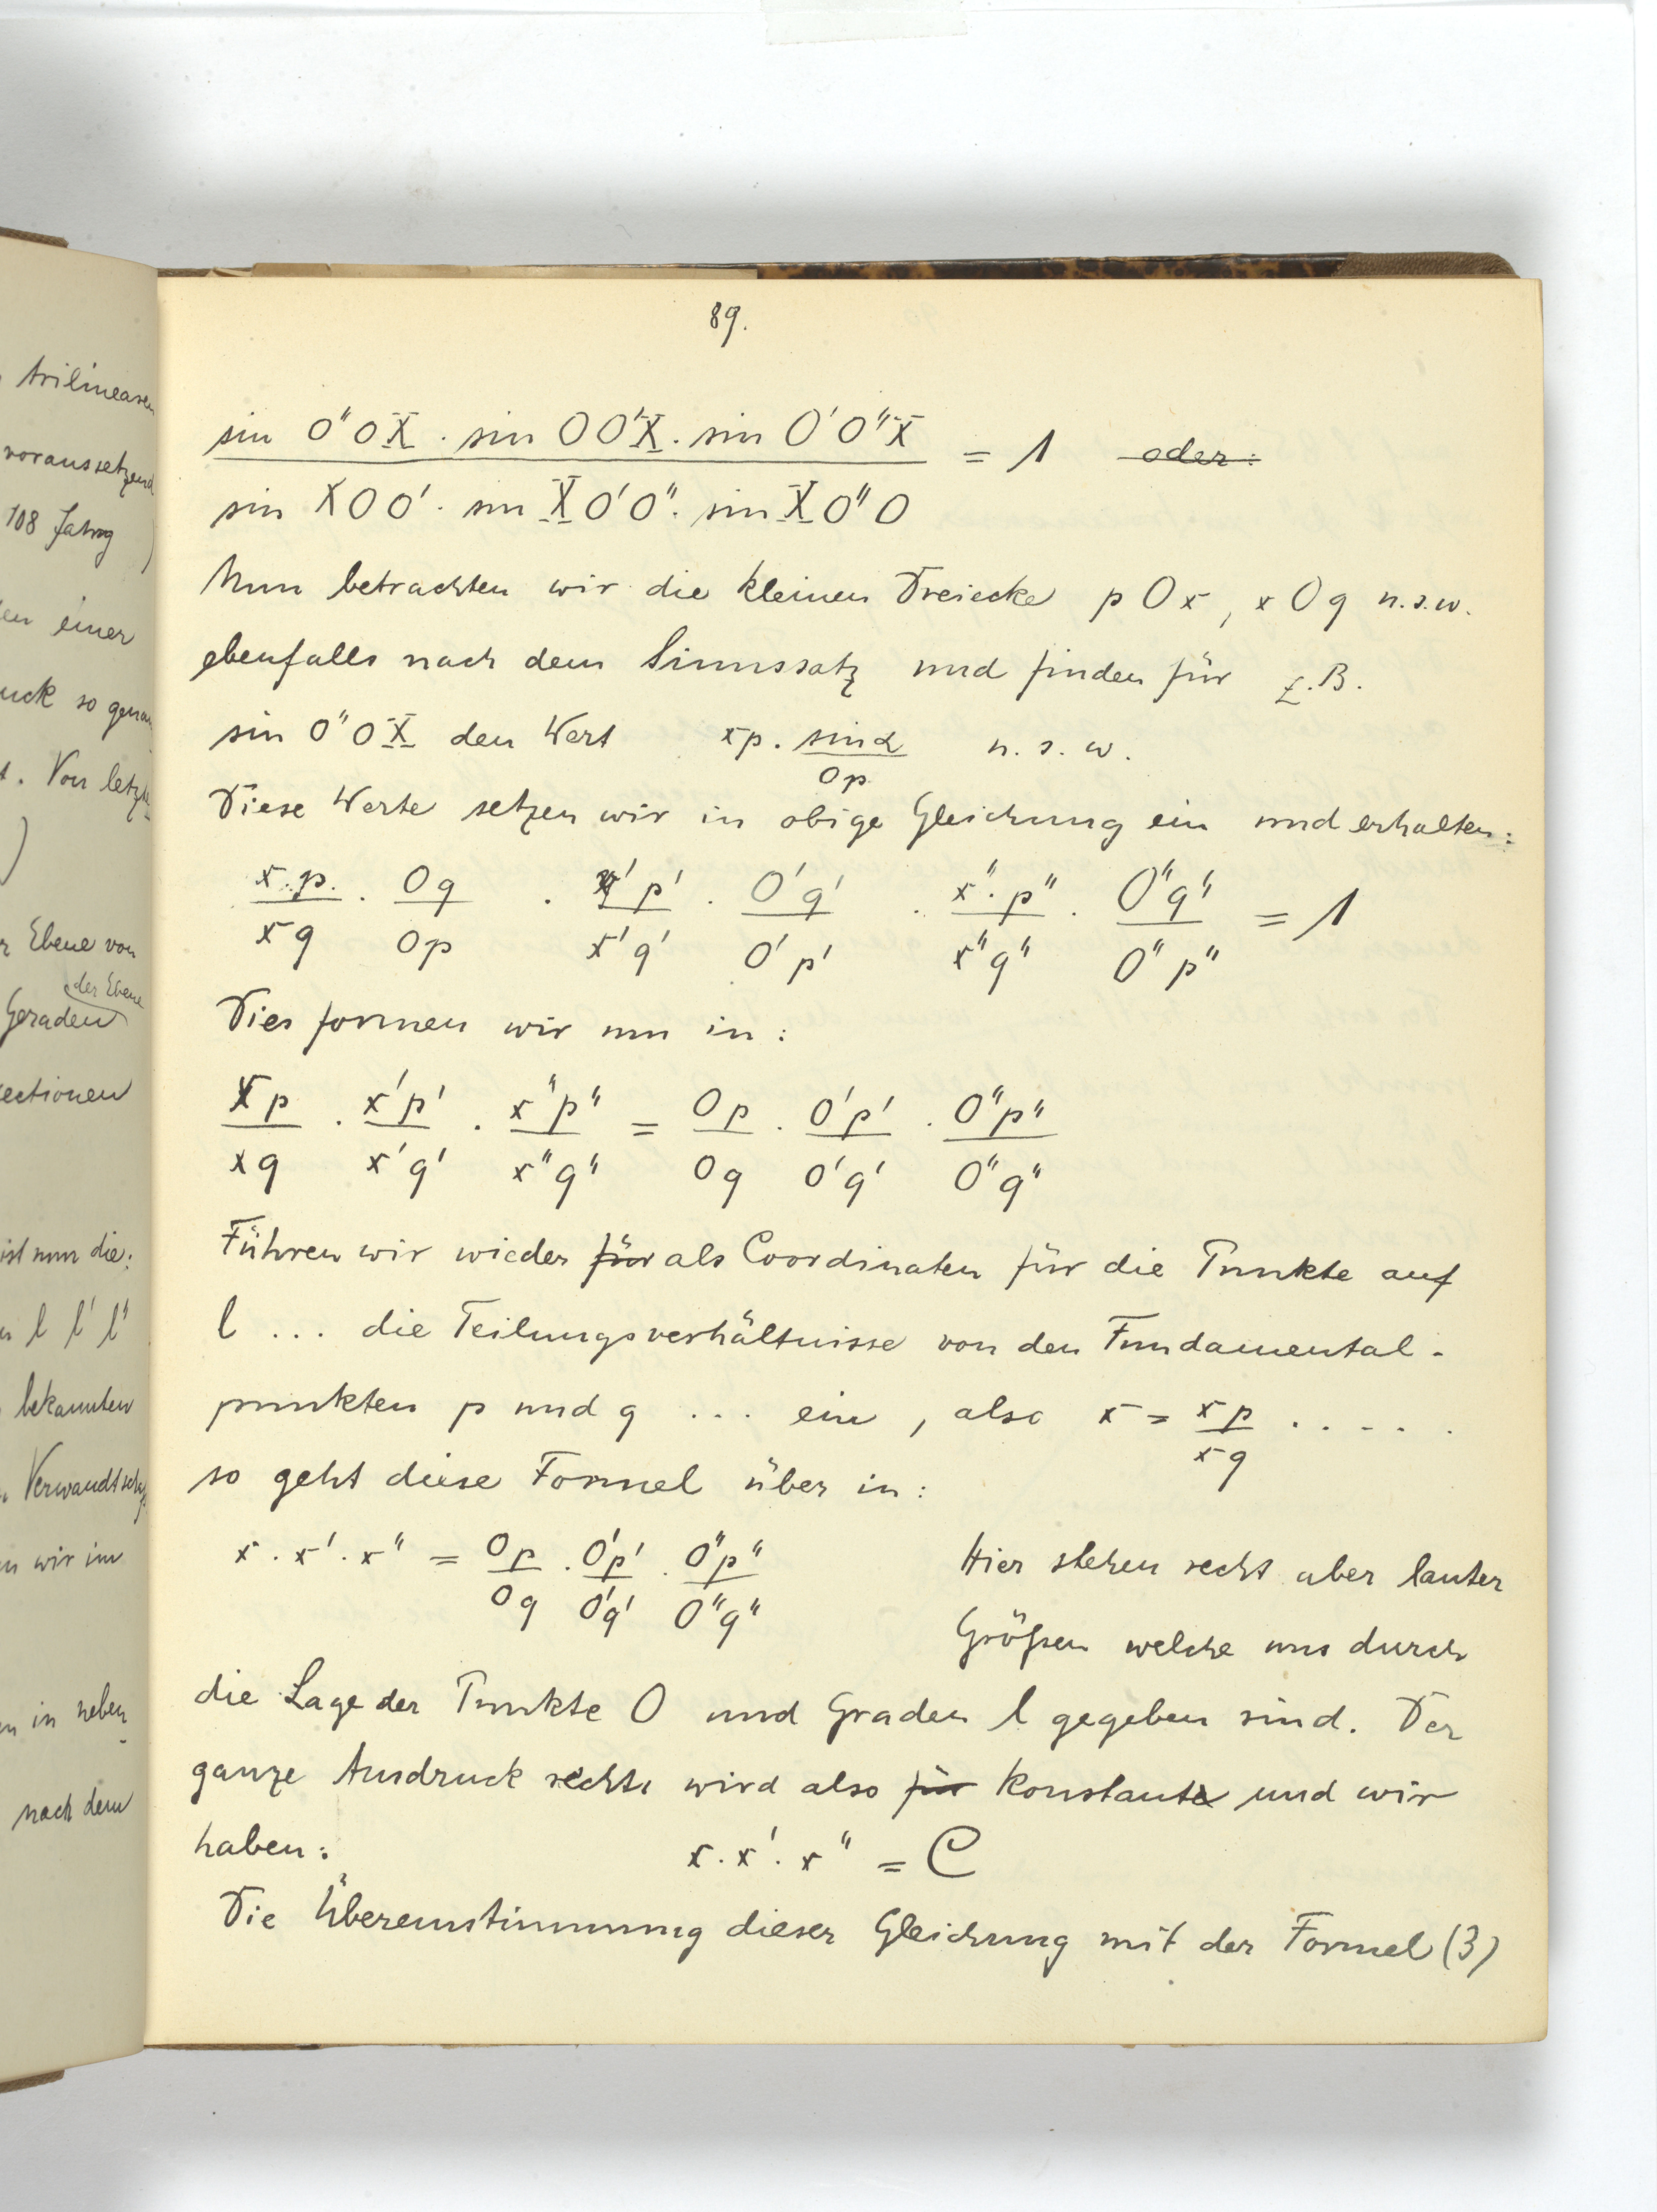 trilinearen
voraussetzend
108 Jahrg )
einer
so genau
. Von letzte
)
Ebene von
der Ebene
Geraden
ectionen
ist nun die:
l l' l"
bekannten
Verwandtschaft
wir im
in neben
nach dem
89.
sin O"OX . sin OO'X . sin O'O"X / sin XOO' . sin XO'O" . sin XO"O = 1 oder:
Nun betrachten wir die kleinen Dreiecke pOx, xOq u.s.w.
ebenfalls nach dem Sinussatz und finden für z.B.
sin O"OX den Wert xp . sin α / Op u. s. w.
Diese Werte setzen wir in obige Gleichung ein und erhalten:
x.p. / xq . Oq / Op . x'p' / x'q' . O'q' / O'p' . x".p" / x"q" . O"q" / O"p" = 1
Dies formen wir um in:
Xp / xq . x'p' / x'q' . x"p" / x"q" = Op / Oq . O'p' / O'q' . O"p" / O"q"
Führen wir wieder für als Coordinaten für die Punkte auf
l ... die Teilungsverhältnisse von den Fundamental-
punkten p und q ... ein, also x = xp / xq . . . . .
so geht diese Formel über in:
x . x' . x" = Op / Oq . O'p' / O'q' . O"p" / O"q" Hier stehen recht aber lauter
Größen welche uns durch
die Lage der Punkte O und Graden l gegeben sind. Der
ganze Ausdruck rechts wird also für konstante und wir
haben: x . x' . x" = C
Die Übereinstimmung dieser Gleichung mit der Formel (3)